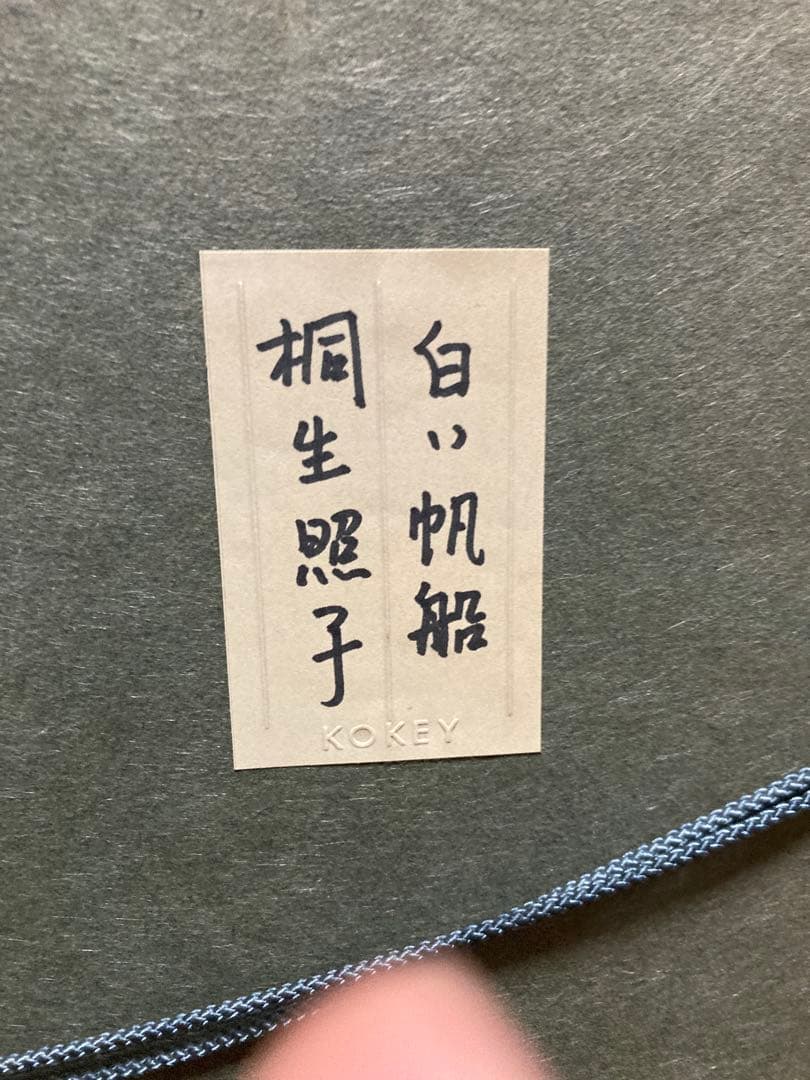 白い帆船
桐生照子
KOKEY